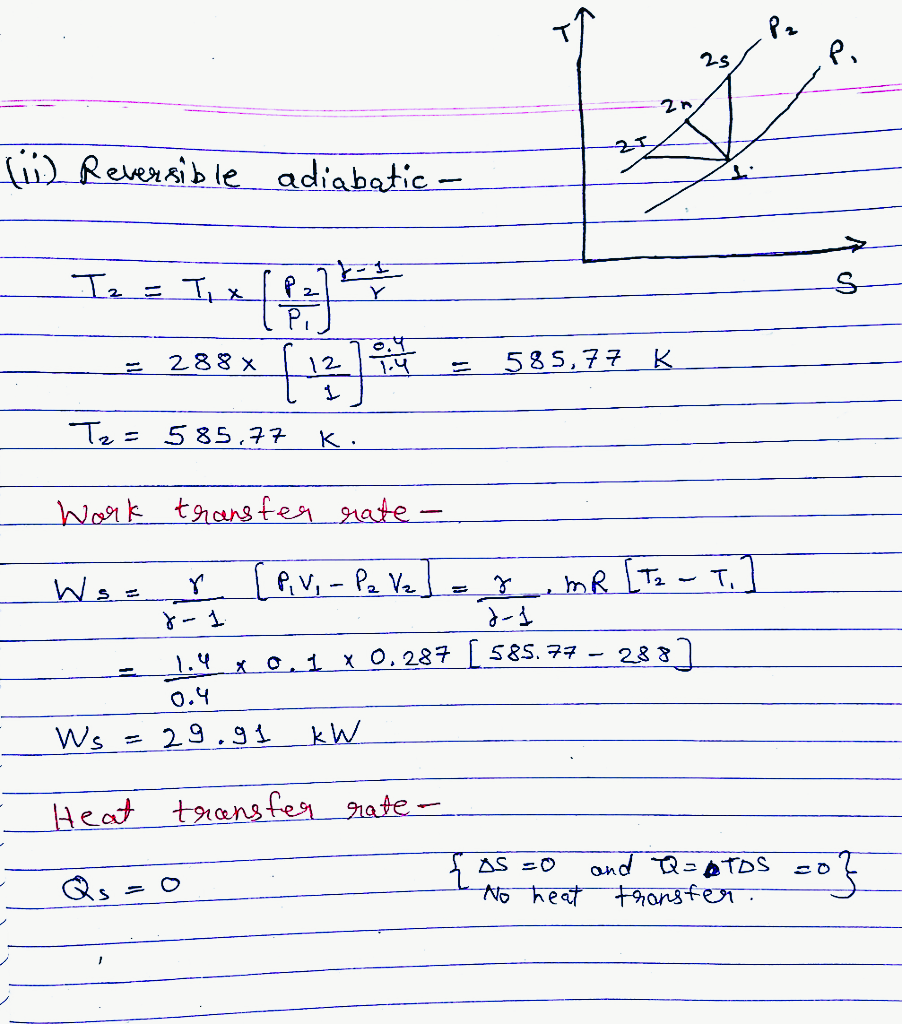 T
P₂
P₁
2s
2n
2T
1.
S
(ii) Reversible adiabatic -
T₂ = T₁ × [P₂/P₁]^((γ-1)/γ)
= 288 × [12/1]^(0.4/1.4) = 585.77 K
T₂ = 585.77 K.
Work transfer rate -
Ws = γ/(γ-1) [P₁V₁ - P₂V₂] = γ/(γ-1) . mR [T₂ - T₁]
= 1.4/0.4 × 0.1 × 0.287 [585.77 - 288]
Ws = 29.91 kW
Heat transfer rate -
Qs = 0 {ΔS = 0 and Q = TDS = 0
No heat transfer.}